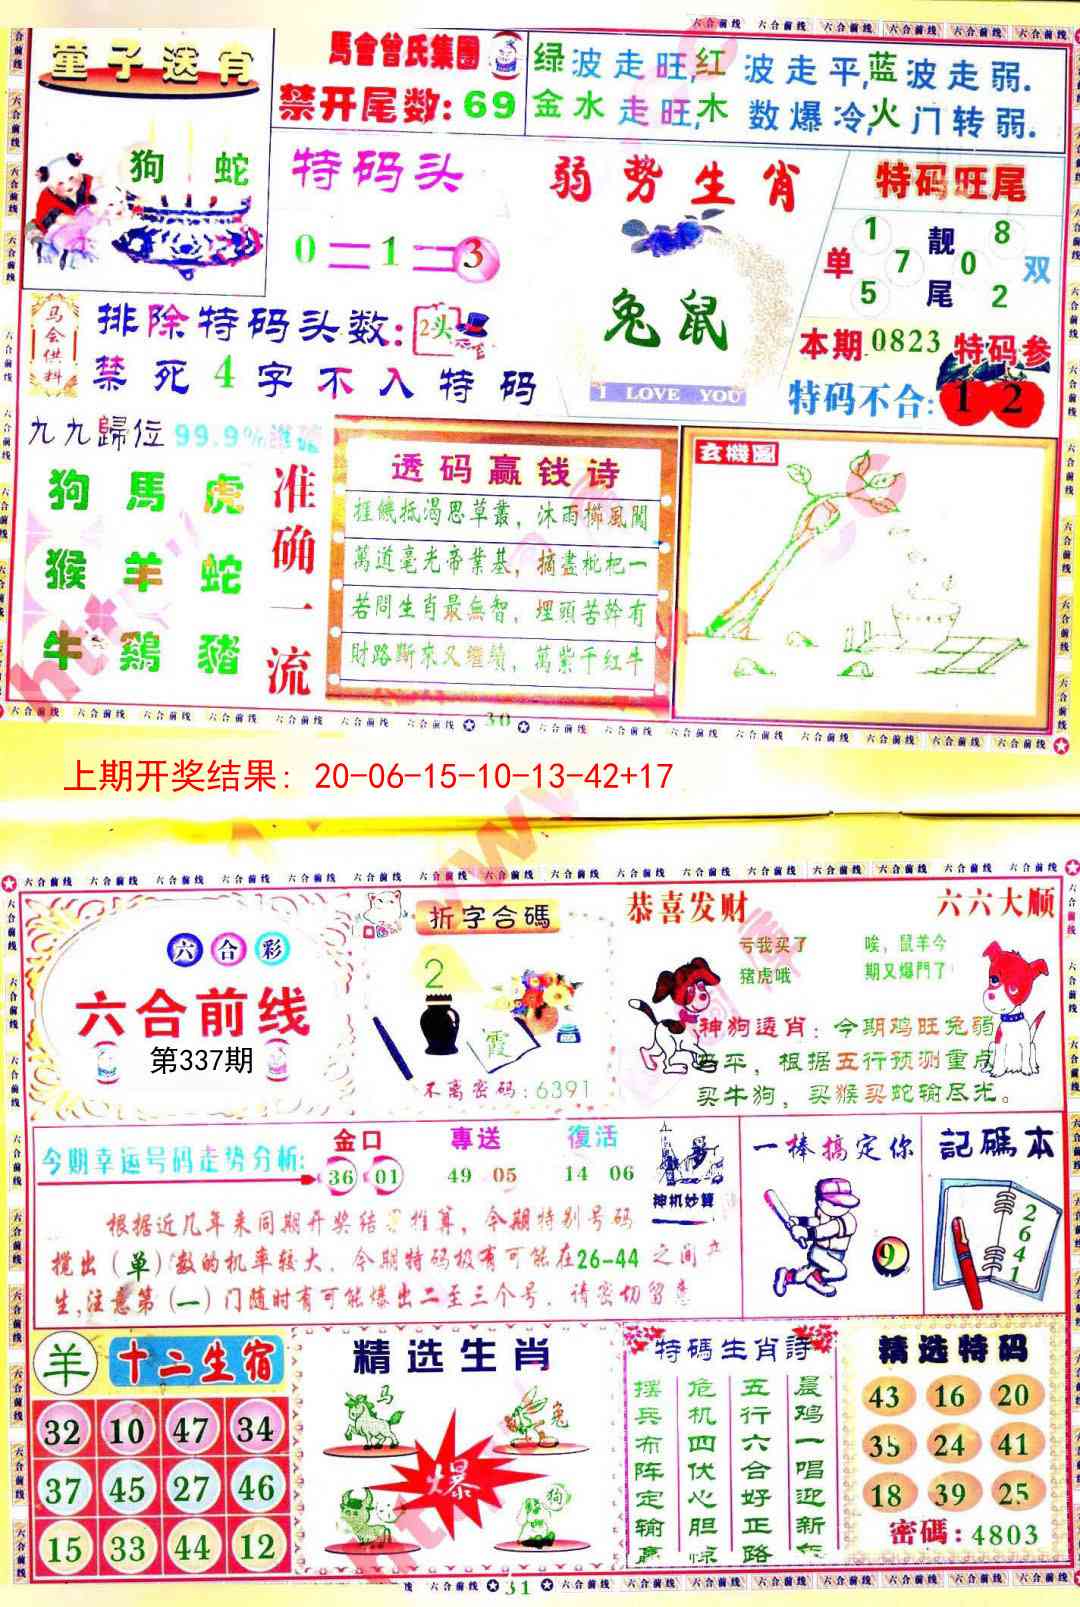 童子送肖
狗 蛇
馬會曾氏集團
禁开尾数: 69
绿波走旺,红波走平,蓝波走弱.
金水走旺,木数爆冷,火门转弱.
特码头
0=1=3
弱势生肖
兔鼠
I LOVE YOU
特码旺尾
单 1 7 5 靓尾 8 0 2 双
本期0823特码参
特码不合: 1 2
马会供料
排除特码头数: 2头
禁死4字不入特码
九九歸位 99.9%準確
狗 馬 虎
猴 羊 蛇
牛 鷄 豬
准确一流
透码赢钱诗
抵渴思草叢, 沐雨櫛風闖
萬道毫光帝業基, 摘盡枇杷一
若問生肖最無智, 埋頭苦幹有
財路斷來又繼續, 萬紫千红牛
玄機圖
六合前线
30
上期开奖结果: 20-06-15-10-13-42+17
六合彩
六合前线
第337期
折字合碼
2
霞
不离密码:6391
恭喜发财
六六大顺
亏我买了
猪虎哦
唉, 鼠羊今
期又爆門了
神狗透肖: 今期鸡旺兔弱
马平, 根据五行预测重点
买牛狗, 买猴买蛇输尽光。
今期幸运号码走势分析:
金口 專送 復活
36 01 49 05 14 06
神机妙算
根据近几年来同期开奖结果推算, 今期特别号码
搅出(单)数的机率较大, 今期特码极有可能在26-44之间产
生,注意第(一)门随时有可能爆出二至三个号, 请密切留意
一棒搞定你
9
記碼本
2641
羊 十二生宿
32 10 47 34
37 45 27 46
15 33 44 12
精选生肖
马 兔
爆
狗
特碼生肖詩
晨鸡一唱迎新
五行六合好正路
危机四伏心胆惊
摆兵布阵定输赢
精选特码
43 16 20
35 24 41
18 39 25
密碼:4803
六合前线
31